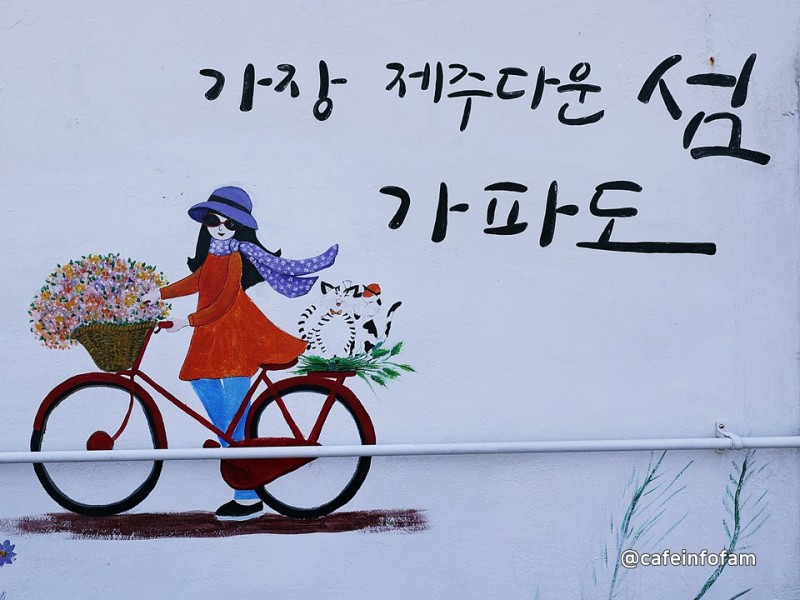 가장 제주다운 섬
가파도
@cafeinfofam